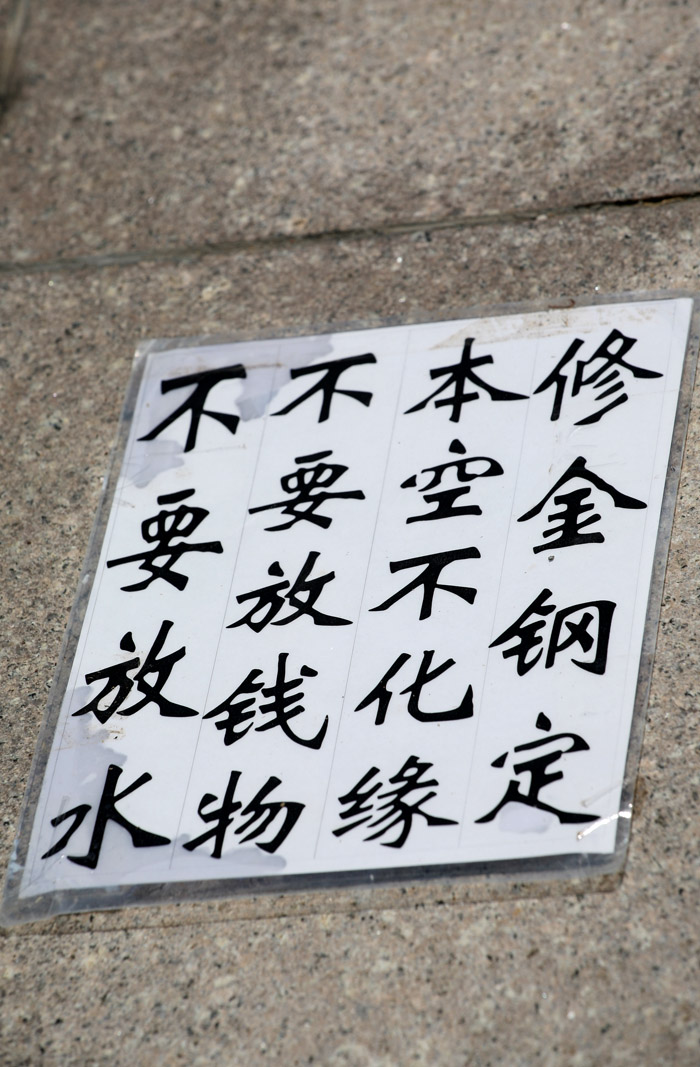 修金钢定
本空不化缘
不要放钱物
不要放水